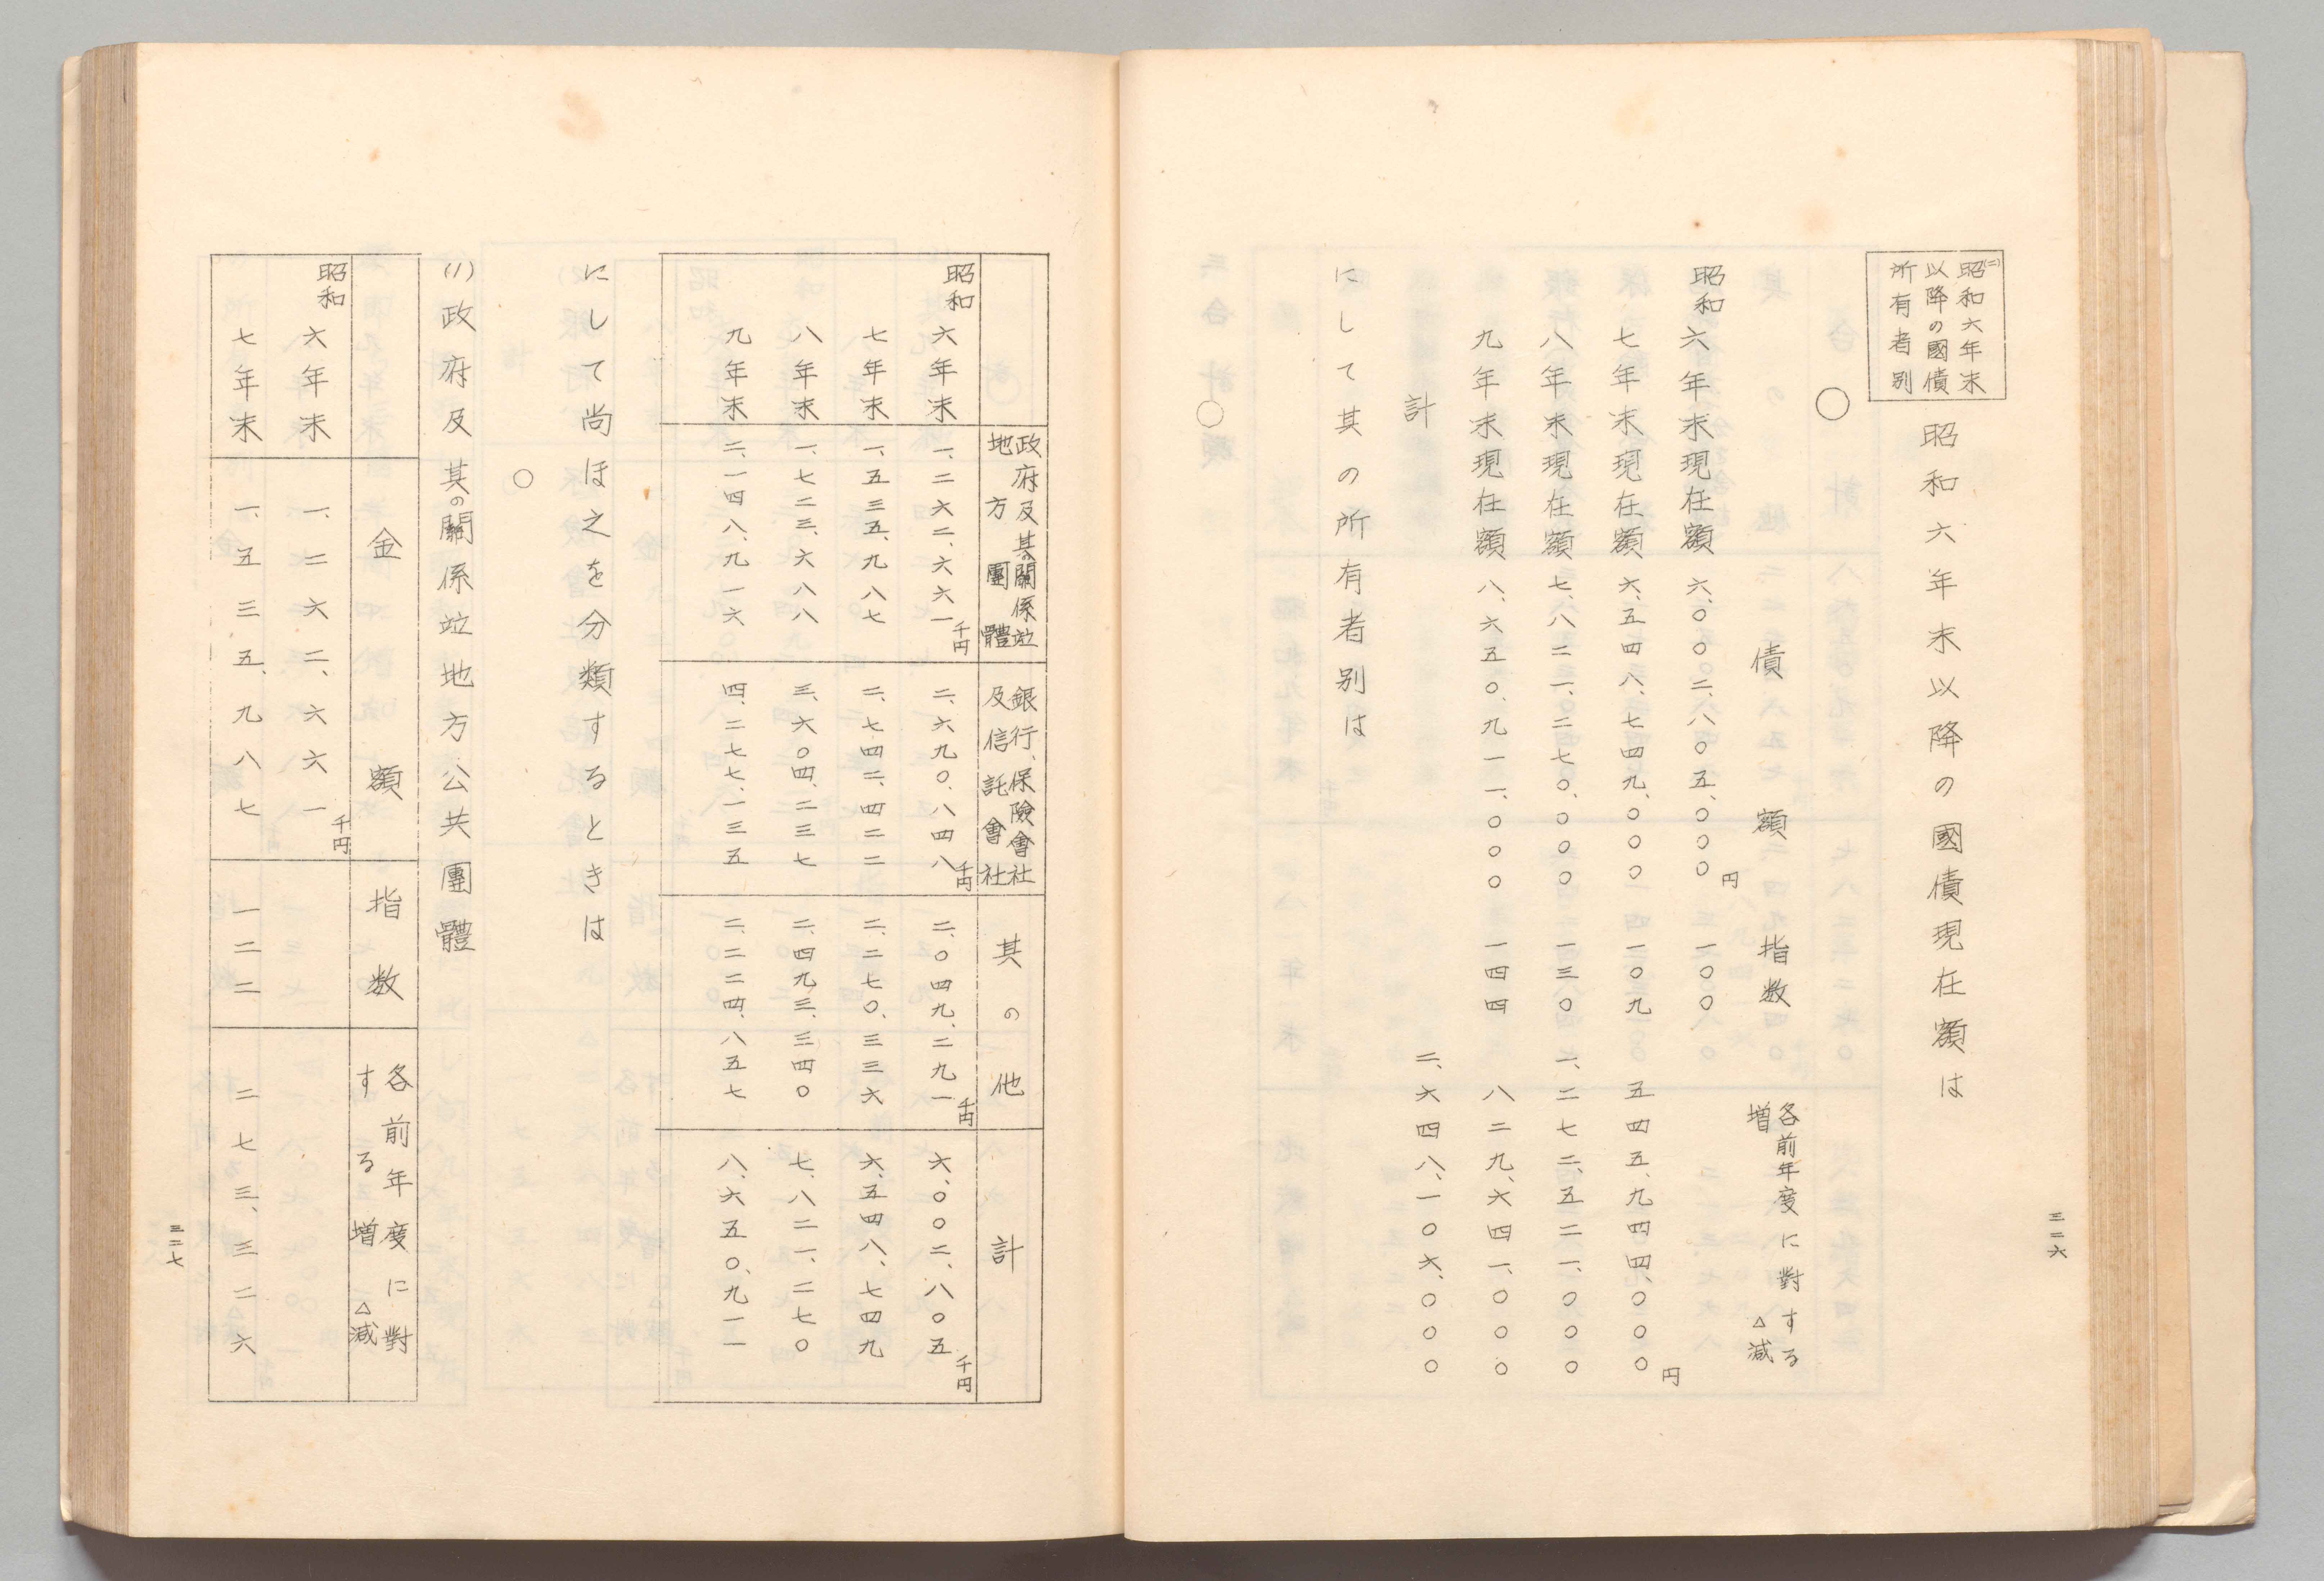 三二六
(二)昭和六年末
以降の國債
所有者別
昭和六年末以降の國債現在額は
○
債額 指数 各前年度に對する
増 △減
昭和六年末現在額 六、〇〇二、八〇五、〇〇〇円 一〇〇
七年末現在額 六、五四八、七四九、〇〇〇 一〇九 五四五、九四四、〇〇〇円
八年末現在額 七、八二一、二七〇、〇〇〇 一三〇 一、二七二、五二一、〇〇〇
九年末現在額 八、六五〇、九一一、〇〇〇 一四四 八二九、六四一、〇〇〇
計 二、六四八、一〇六、〇〇〇
にして其の所有者別は
○
政府及其の關係竝
地方團體
銀行、保險會社
及信託會社
其の他
計
昭和六年末 一、二六二、六六一千円 二、六九〇、八四八千円 二、〇四九、二九一千円 六、〇〇二、八〇五千円
七年末 一、五三五、九八七 二、七四二、四二二 二、二七〇、三三六 六、五四八、七四九
八年末 一、七二三、六八八 三、六〇四、二三七 二、四九三、三四〇 七、八二一、二七〇
九年末 二、一四八、九一六 四、二七七、一三五 二、二二四、八五七 八、六五〇、九一一
にして尚ほ之を分類するときは
○
(1)政府及其の關係竝地方公共團體
金額 指数 各前年度に對
する増 △減
昭和六年末 一、二六二、六六一千円
七年末 一、五三五、九八七 一二二 二七三、三二六
三二七